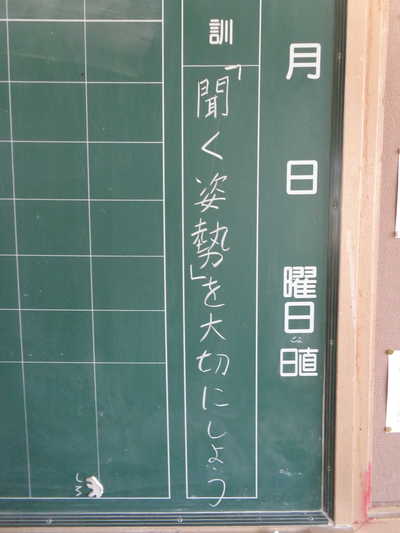 月 日 曜日
日直
訓
「聞く姿勢」を大切にしよう